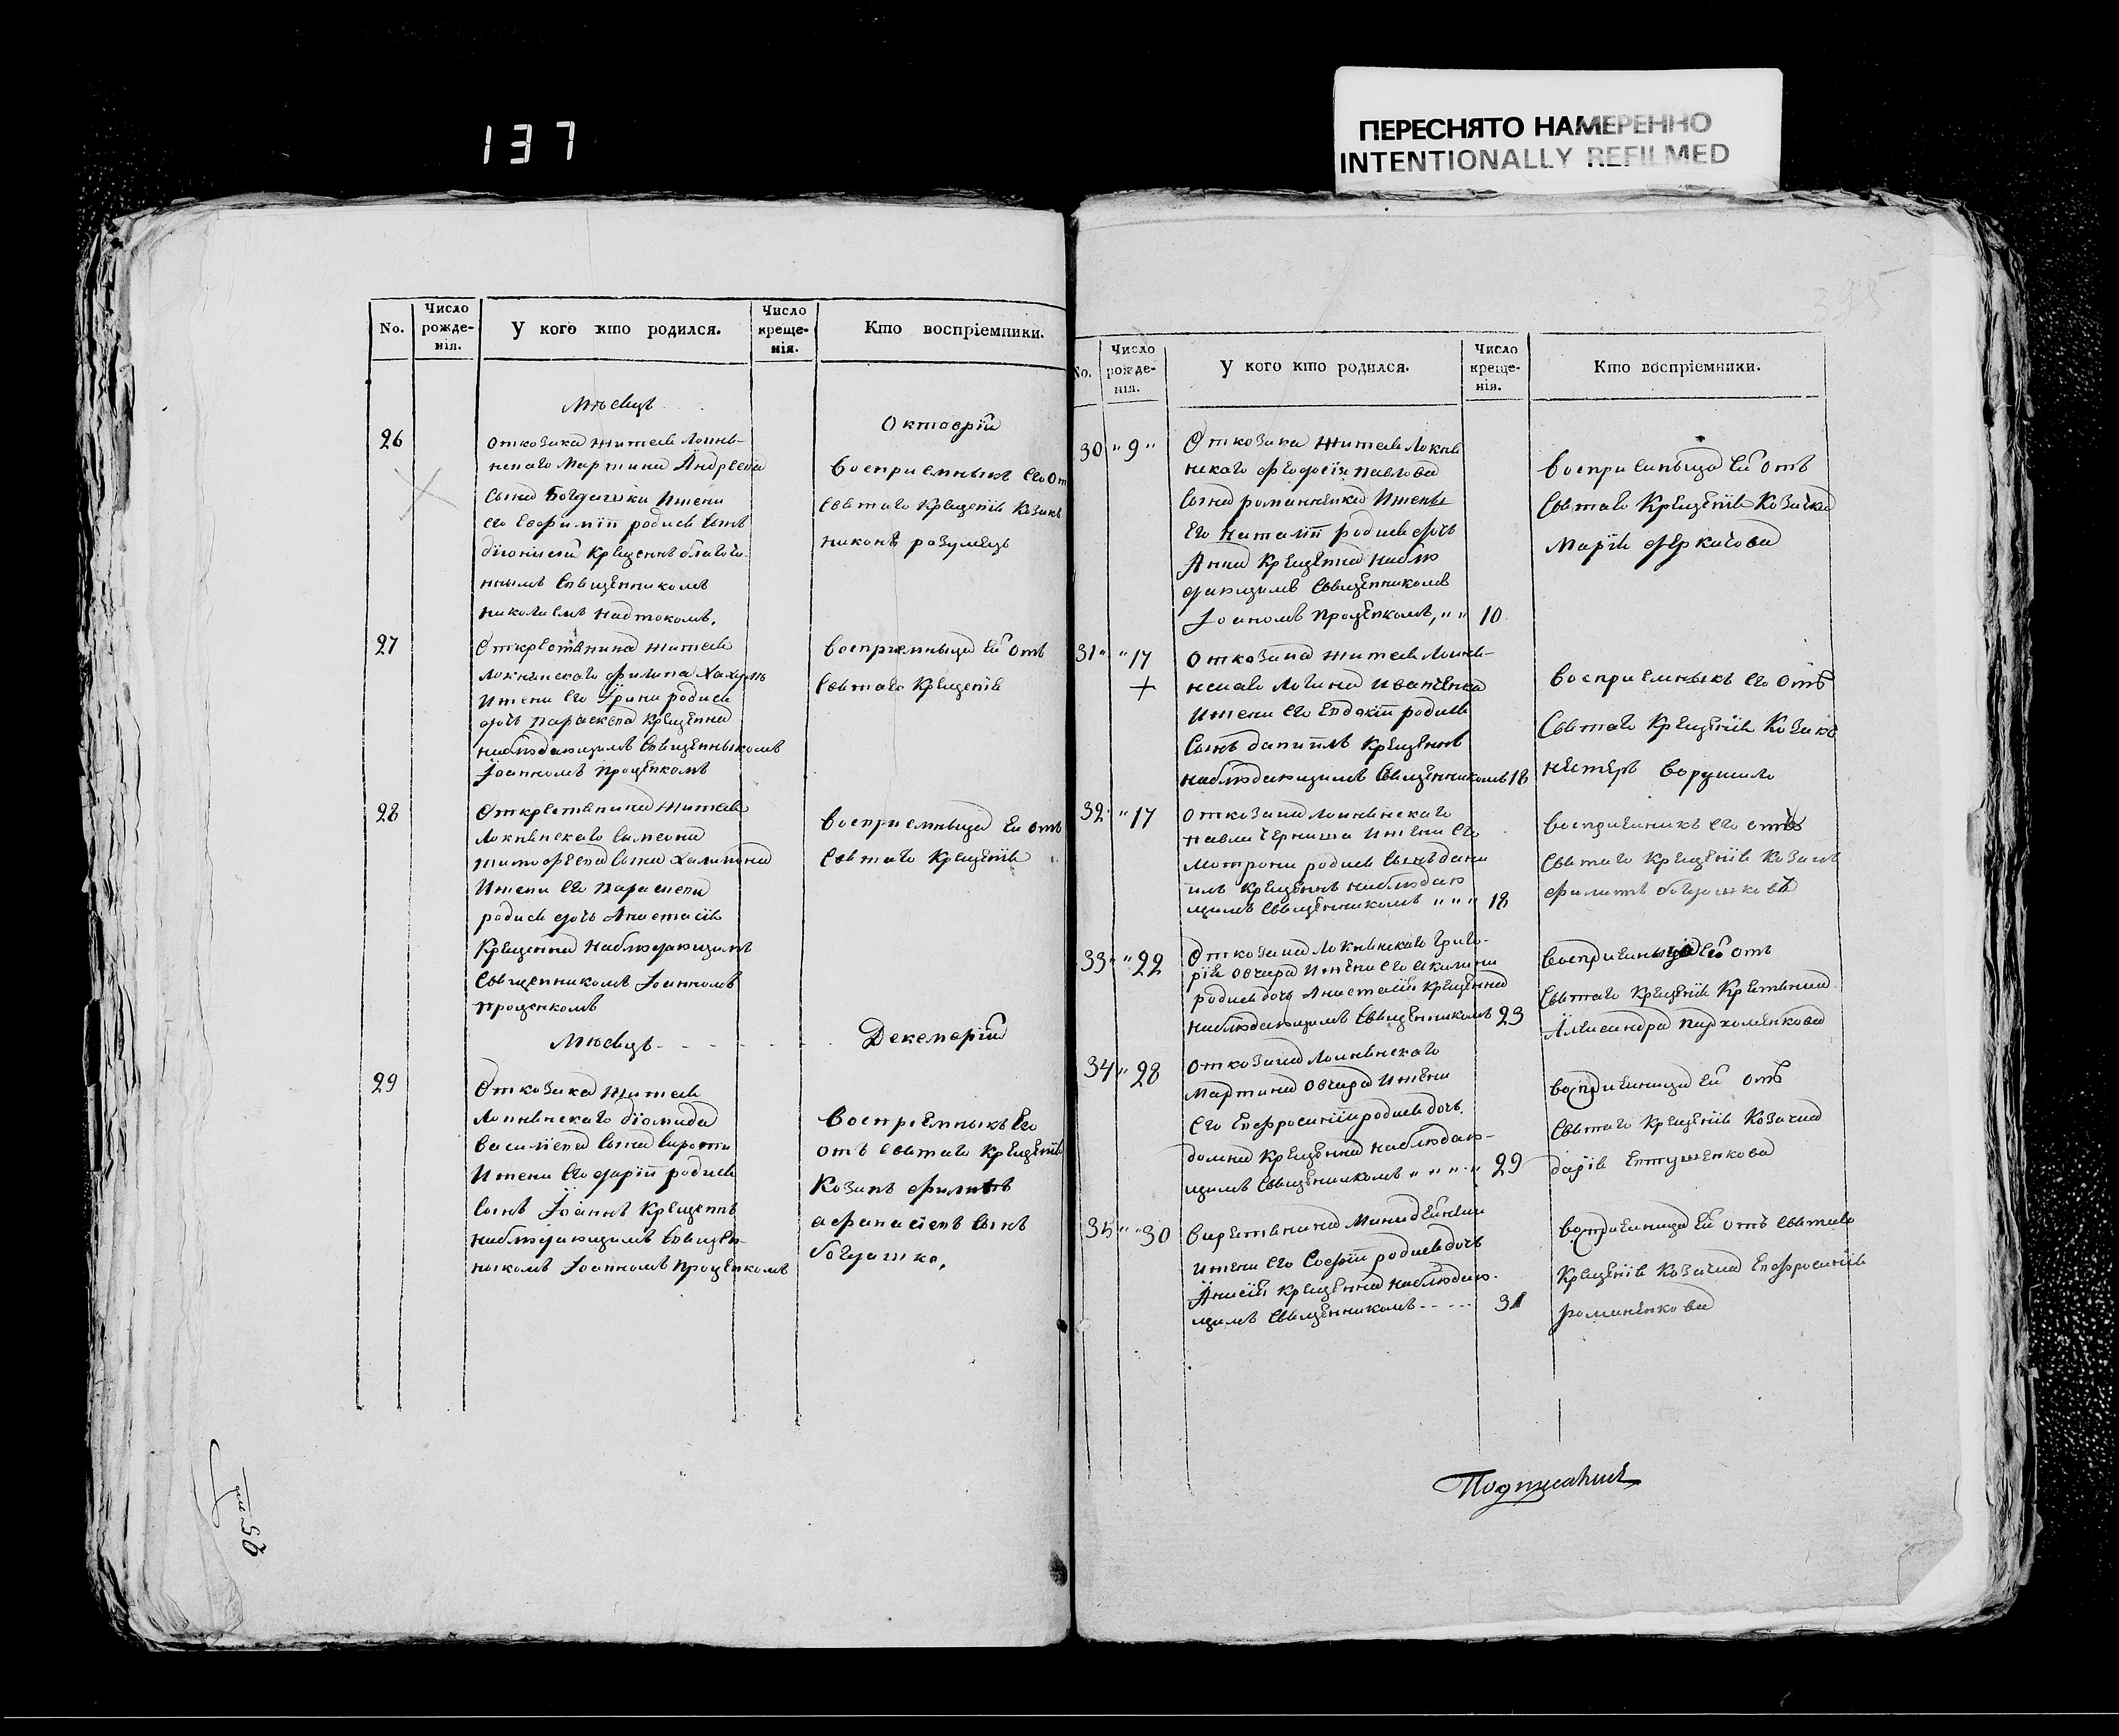 137
ПЕРЕСНЯТО НАМЕРЕННО
INTENTIONALLY REFILMED
No.
Число рожде-нія.
У кого кто родился.
Число креще-нія.
Кто воспріемники.
Мѣсяцъ
Октоврій
26
Откозака жителя Локнѣ-
нскаго Мартина Андреева
сына Богдашки Жени
его Евфиміи родися сынъ
діонисій крещенъ благочи-
ннымъ священникомъ
николаемъ надтокомъ.
воспріемникъ его от
святаго крещенія козакъ
никонъ розумецъ
27
Откревтянина жителя
Локнянскаго филипа Хахуль
Жени его Ірини родися
дочь параскева крещенна
наблюдающимъ священникомъ
Іоанномъ проценкомъ
воспріемница ей отъ
святаго крещенія
28
Откревтянина жителя
Локнѣнскаго симеона
тимофеева сына
Жени его параскеви
родися дочь Анастасія
Крещенна наблюдающимъ
священникомъ Іоанномъ
проценкомъ
воспріемница ей отъ
святаго крещенія
Мѣсяцъ
Декемврій
29
Откозака жителя
Локнѣнскаго діомида
василіева сына сироти
Жени его дарій родися
сынъ Іоаннъ крещеннъ
наблюдающимъ священ-
никомъ Іоанномъ проценкомъ
воспріемникъ его
отъ святаго крещенія
Козакъ филипъ
афанасіевъ сынъ
богдашко,
No.
Число рожде-нія.
У кого кто родился.
Число креще-нія.
Кто воспріемники.
30 " 9 "
Откозака жителя Локнѣ
нскаго феодосія павлова
сына романенка Жены
его наталіи родися дочь
Анна крещенна наблю
дающимъ священникомъ
Іоаномъ проценкомъ, " " 10
воспріемница ей отъ
святаго крещенія козачка
Марія деркачова
31 " " 17
откозака жителя Локнѣ-
нскаго логина иваненка
Жени его евдокіи родися
сынъ даниилъ крещеннъ
наблюдающимъ священникомъ 18
воспріемникъ его отъ
святаго крещенія козакъ
нестеръ ворушило
32 " 17
откозака локнѣнскаго
павла черниша жени его
мотрони родися сынъ дани
илъ крещеннъ наблюдаю
щимъ священникомъ " " " 18
воспріемникъ его отъ
святаго крещенія козакъ
филипъ богдашковъ
33 " " 22
Откозака локнѣнскаго григо-
рія овчара жени его акилини
родися дочь Анастасія крещенна
наблюдающимъ священникомъ 23
воспріемница ей отъ
святаго крещенія
Александра пархоменкова
34 " 28
откозака локнѣнскаго
мартина овчара жени
его евфросиніи родися дочь
домна крещенна наблюдаю-
щимъ священникомъ " " " " 29
воспріемница ей отъ
святаго крещенія козачка
дарія евтушенкова
35 " " 30
жени его софіи родися дочь
Анисія крещенна наблюдаю-
щимъ священникомъ - - - - - 31
воспріемница ей отъ святаго
крещенія козачка евфросинія
романенкова